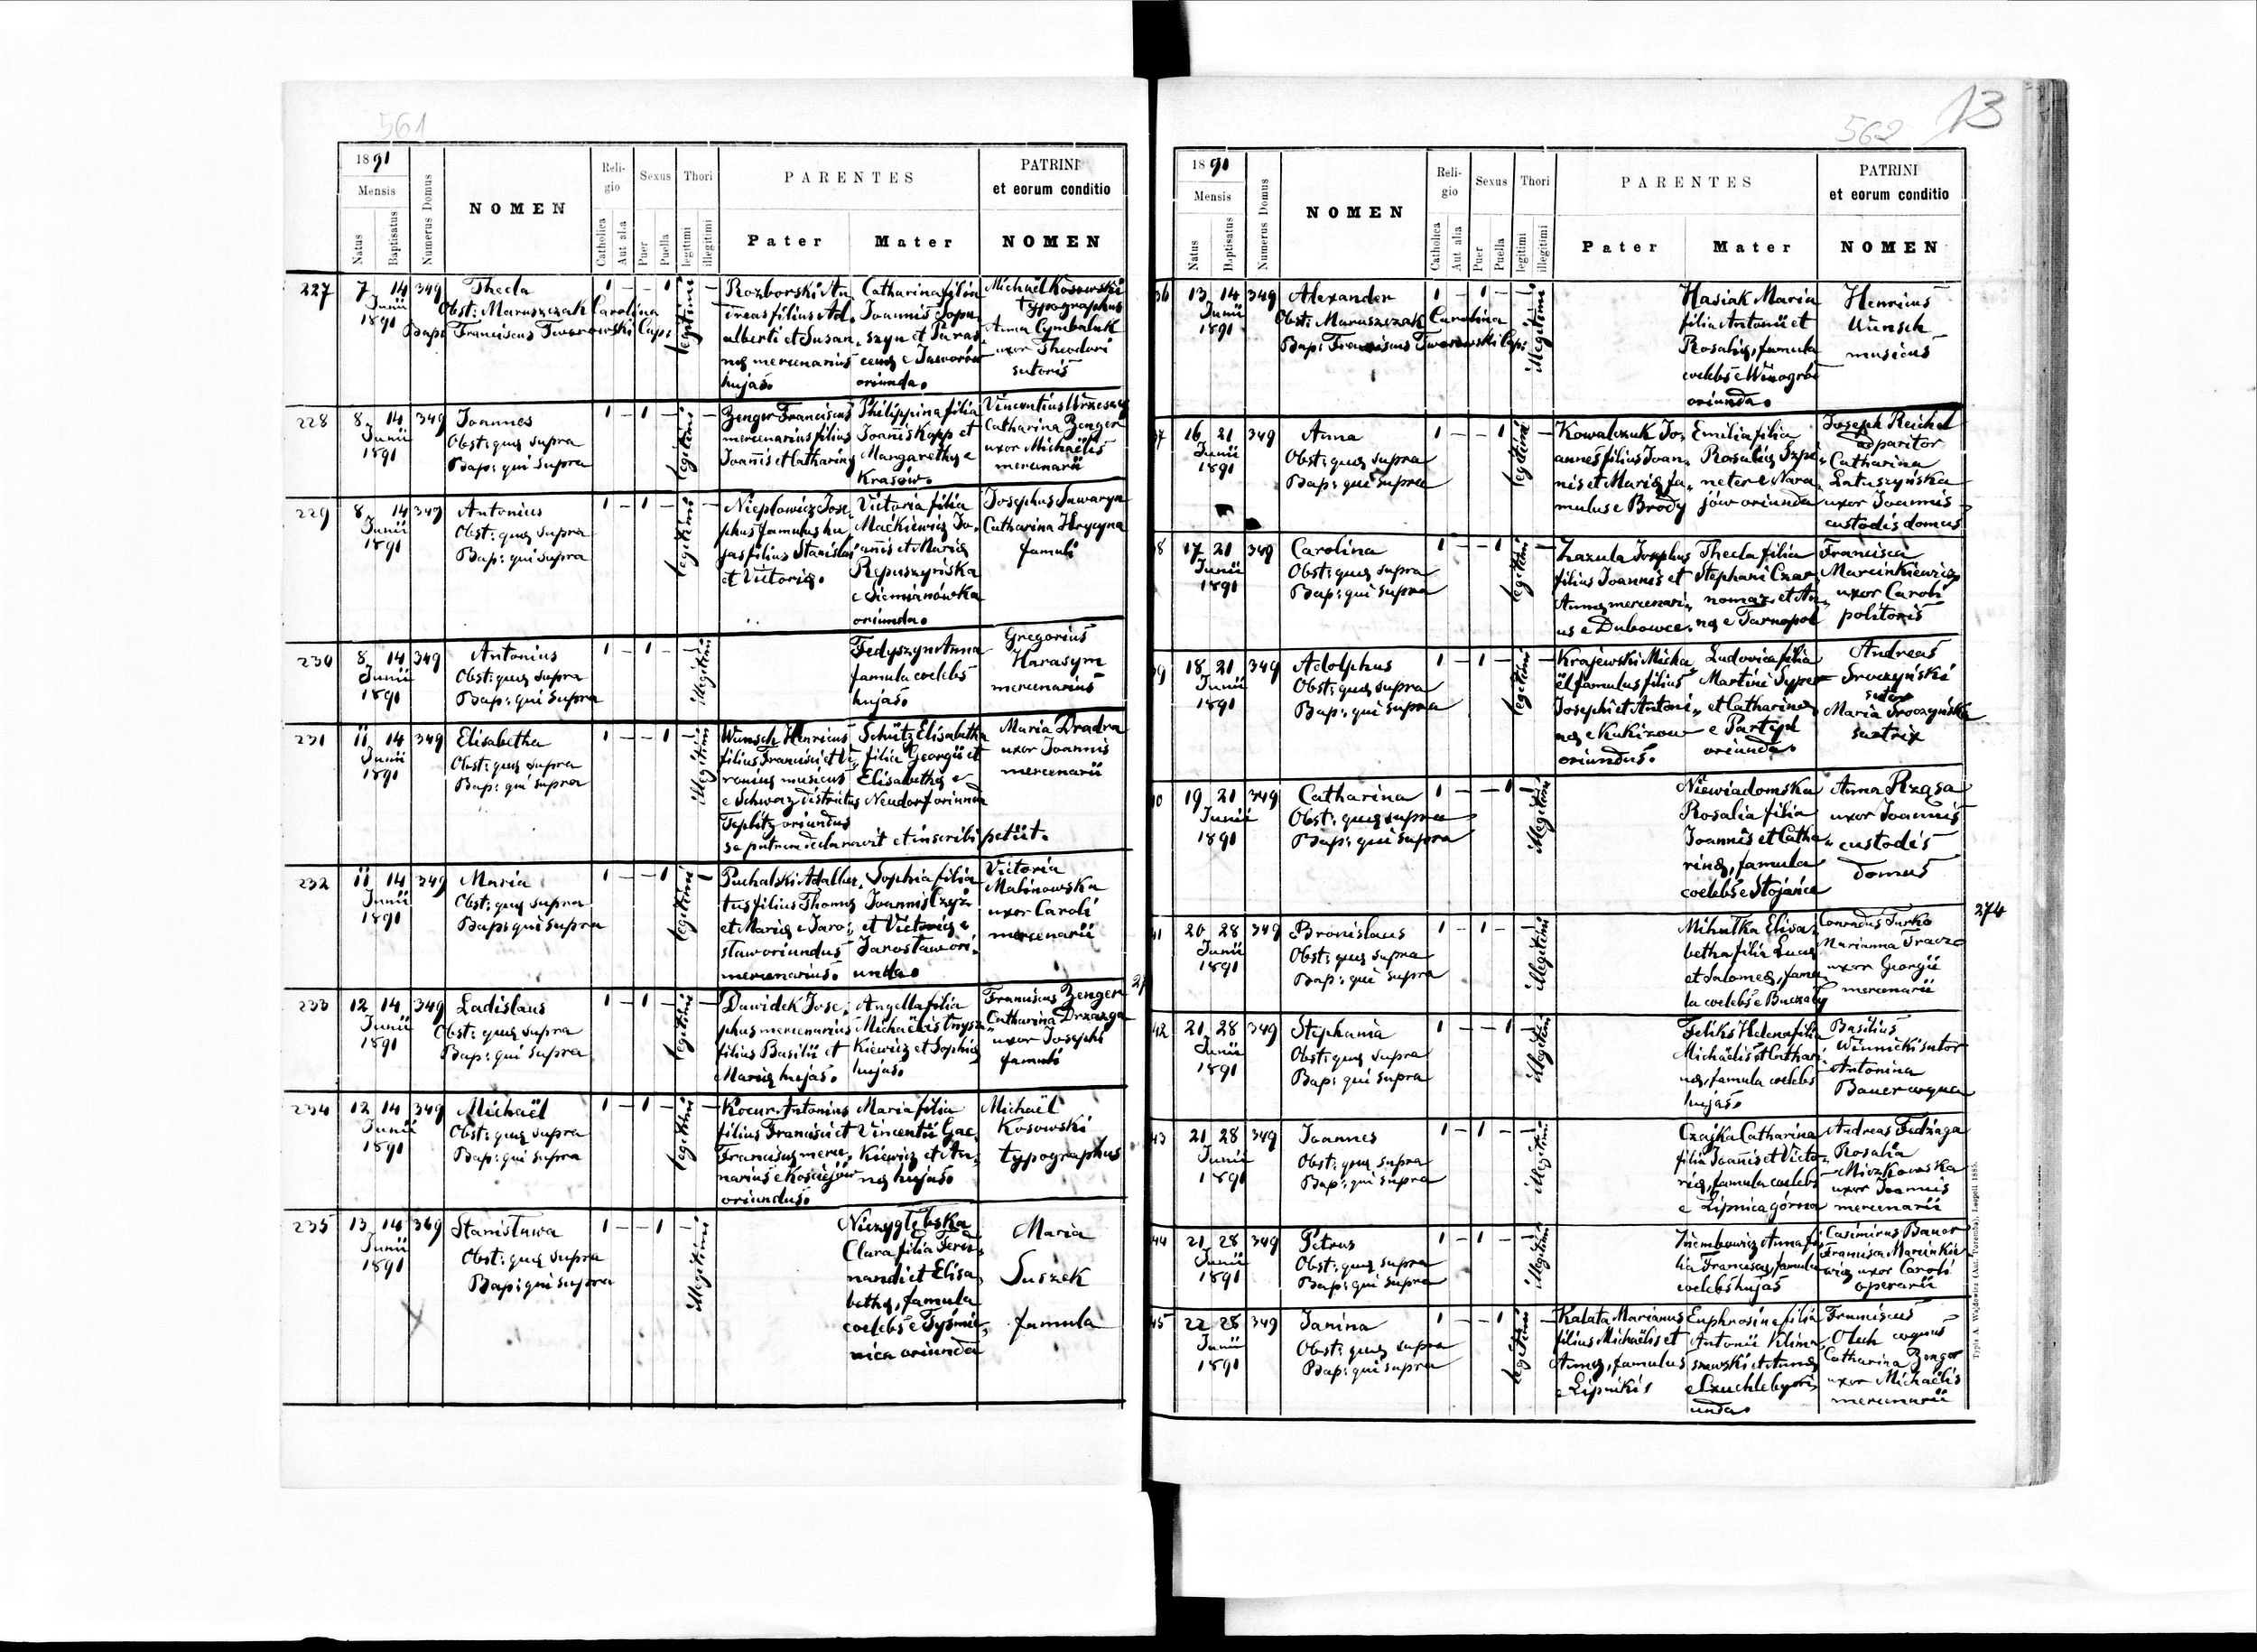 561
1891
Mensis
Natus
Baptisatus
Numerus Domus
NOMEN
Religio
Catholica
Aut alia
Sexus
Puer
Puella
Thori
legitimi
illegitimi
PARENTES
Pater
Mater
PATRINI
et eorum conditio
NOMEN
227
7 14 349
Junii
1891
Thecla
Obst: Maruszczak Carolina
Bap: Franciscus Twarowski Cap:
1 – – 1
legitimi –
Rozborski An,
dreas filius Ad,
alberti et Susan,
nę mercenarius
hujas.
Catharina filia
Joannis Sopu,
szyn et Paras,
cevę e Jaworów
oriunda.
Michaël Kosowski
typographus
Anna Cymbaluk
uxor Theodori
sutoris
228
8 14 349
Junii
1891
Joannes
Obst: quę supra
Bap: qui supra
1 – 1 –
legitimi –
Zenger Franciscus
mercenarius filius
Joannis et Catharinę
Philippina filia
Joannis Kopp et
Margarethę e
Krasów.
Vincentius Wrzeszcz
Catharina Zenger
uxor Michaëlis
mercenarii
229
8 14 349
Junii
1891
Antonius
Obst: quę supra
Bap: qui supra
1 – 1 –
legitimi –
Niepłowicz Jose,
phus famulus hu,
jas filius Stanislai
et Victorię.
Victoria filia
Maćkiewicz Jo,
annis et Marię
Repuszyńska
e Siemianówka
oriunda.
Josephus Suwaryn
Catharina Hrycyna
famuli
230
8 14 349
Junii
1891
Antonius
Obst: quę supra
Bap: qui supra
1 – 1 –
illegitimi
Fedyszyn Anna
famula coelebs
hujas.
Gregorius
Harasym
mercenarius
231
11 14 349
Junii
1891
Elisabetha
Obst: quę supra
Bap: qui supra
1 – – 1
illegitimi
Wunsch Henricus
filius Francisci et Ve,
ronicę musicus
e Schwaz districtus
Teplitz oriundus
se patrem declaravit et inscribi petiit.
Schütz Elisabetha
filia Georgii et
Elisabethę e
Neudorf oriunda
Maria Dradra
uxor Joannis
mercenarii
232
11 14 349
Junii
1891
Maria
Obst: quę supra
Bap: qui supra
1 – – 1
legitimi –
Puchalski Adalber,
tus filius Thomę
et Marię e Jaro,
sław oriundus
mercenarius.
Sophia filia
Joannis Czyż
et Victorię e
Jarosław ori,
unda.
Victoria
Malinowska
uxor Caroli
mercenarii
233
12 14 349
Junii
1891
Ladislaus
Obst: quę supra
Bap: qui supra
1 – 1 –
legitimi –
Dawidek Jose,
phus mercenarius
filius Basilii et
Marię hujas.
Angella filia
Michaëlis
kiewicz et Sophię
hujas.
Franciscus Zenger
Catharina Drzazga
uxor Josephi
famuli
234
12 14 349
Junii
1891
Michaël
Obst: quę supra
Bap: qui supra
1 – 1 –
legitimi –
Kocur Antonius
filius Francisci et
Franciscę merce,
narius e Kościejów
oriundus.
Maria filia
Vincentii Gac,
kiewicz et An,
nę hujas.
Michaël
Kosowski
typographus
235
13 14 349
Junii
1891
Stanisława
Obst: quę supra
Bap: qui supra
1 – – 1 –
illegitimi
Niezyglebska
Clara filia Ferdi,
nandi et Elisa,
bethę, famula
coelebs e Tyśmie,
nica oriunda
Maria
Suszek
famula
13
562
1891
Mensis
Natus
Baptisatus
Numerus Domus
NOMEN
Religio
Catholica
Aut alia
Sexus
Puer
Puella
Thori
legitimi
illegitimi
PARENTES
Pater
Mater
PATRINI
et eorum conditio
NOMEN
36
13 14 349
Junii
1891
Alexander
Obst: Maruszczak Carolina
Bap: Franciscus Twarowski Cap:
1 – 1 –
illegitimi
Hasiak Maria
filia Antonii et
Rosalię, famula
coelebs e Winogród
oriunda.
Henricus
Wunsch
musicus
37
16 21 349
Junii
1891
Anna
Obst: quę supra
Bap: qui supra
1 – – 1
legitimi –
Kowalczuk Jo,
annes filius Joan,
nis et Marię fa,
mulus e Brody
Emilia filia
Rosalię Szpi,
neter e Nara,
jów oriunda
Joseph Reichel
apparitor
Catharina
Łatuszyńska
uxor Joannis
custodis domus
38
17 21 349
Junii
1891
Carolina
Obst: quę supra
Bap: qui supra
1 – – 1
legitimi –
Zazula Josephus
filius Joannis et
Annę mercenari,
us e Dubowce.
Thecla filia
Stephani Czar,
nomaz et An,
nę e Tarnopol
Francisca
Marcinkiewicz
uxor Caroli
politoris
39
18 21 349
Junii
1891
Adolphus
Obst: quę supra
Bap: qui supra
1 – 1 –
legitimi –
Krajewski Micha,
ël famulus filius
Josephi et Antoni,
nę e Kukizow
oriundus.
Ludovica filia
Martini Syper
et Catharinę
e Partyd
oriunda.
Andreas
Sroczyński
sutor
Maria Sroczyńska
sartrix
40
19 21 349
Junii
1891
Catharina
Obst: quę supra
Bap: qui supra
1 – – 1
illegitimi
Niewiadomska
Rosalia filia
Joannis et Catha,
rinę, famula
coelebs e Stojańce
Anna Rzasa
uxor Joannis
custodis
domus
274
41
20 28 349
Junii
1891
Bronislaus
Obst: quę supra
Bap: qui supra
1 – 1 –
illegitimi
Mihutka Elisa,
betha filia Lucę
et Salomeę, famu,
la coelebs e Buczały
Conradus Turko
Marianna Tracz
uxor Georgii
mercenarii
42
21 28 349
Junii
1891
Stephania
Obst: quę supra
Bap: qui supra
1 – – 1
illegitimi
Feliks Helena filia
Michaëlis et Cathari,
nę, famula coelebs
hujas.
Basilius
Winnicki sutor
Antonina
Bauer coqua
43
21 28 349
Junii
1891
Joannes
Obst: quę supra
Bap: qui supra
1 – 1 –
illegitimi
Czajka Catharina
filia Joannis et Victo,
rię, famula coelebs
e Lipnica górna
Andreas Fedziaga
Rosalia
Miczkowska
uxor Joannis
mercenarii
44
21 28 349
Junii
1891
Petrus
Obst: quę supra
Bap: qui supra
1 – 1 –
illegitimi
Ziembowicz Anna fi,
lia Franciscę, famula
coelebs hujas
Casimirus Bauer
Francisca Marcinkie,
wicz uxor Caroli
operarii
45
22 28 349
Junii
1891
Janina
Obst: quę supra
Bap: qui supra
1 – – 1
legitimi –
Kałata Marianus
filius Michaëlis et
Annę, famulus
e Lipniki
Euphrosine filia
Antonii Klima,
szewski et Annę
e Suchleby ori,
unda.
Franciscus
Olech coquus
Catharina Zenger
uxor Michaëlis
mercenarii
Typis A. Wajdowicz (Ant. Poremba), Leopoli 1885.